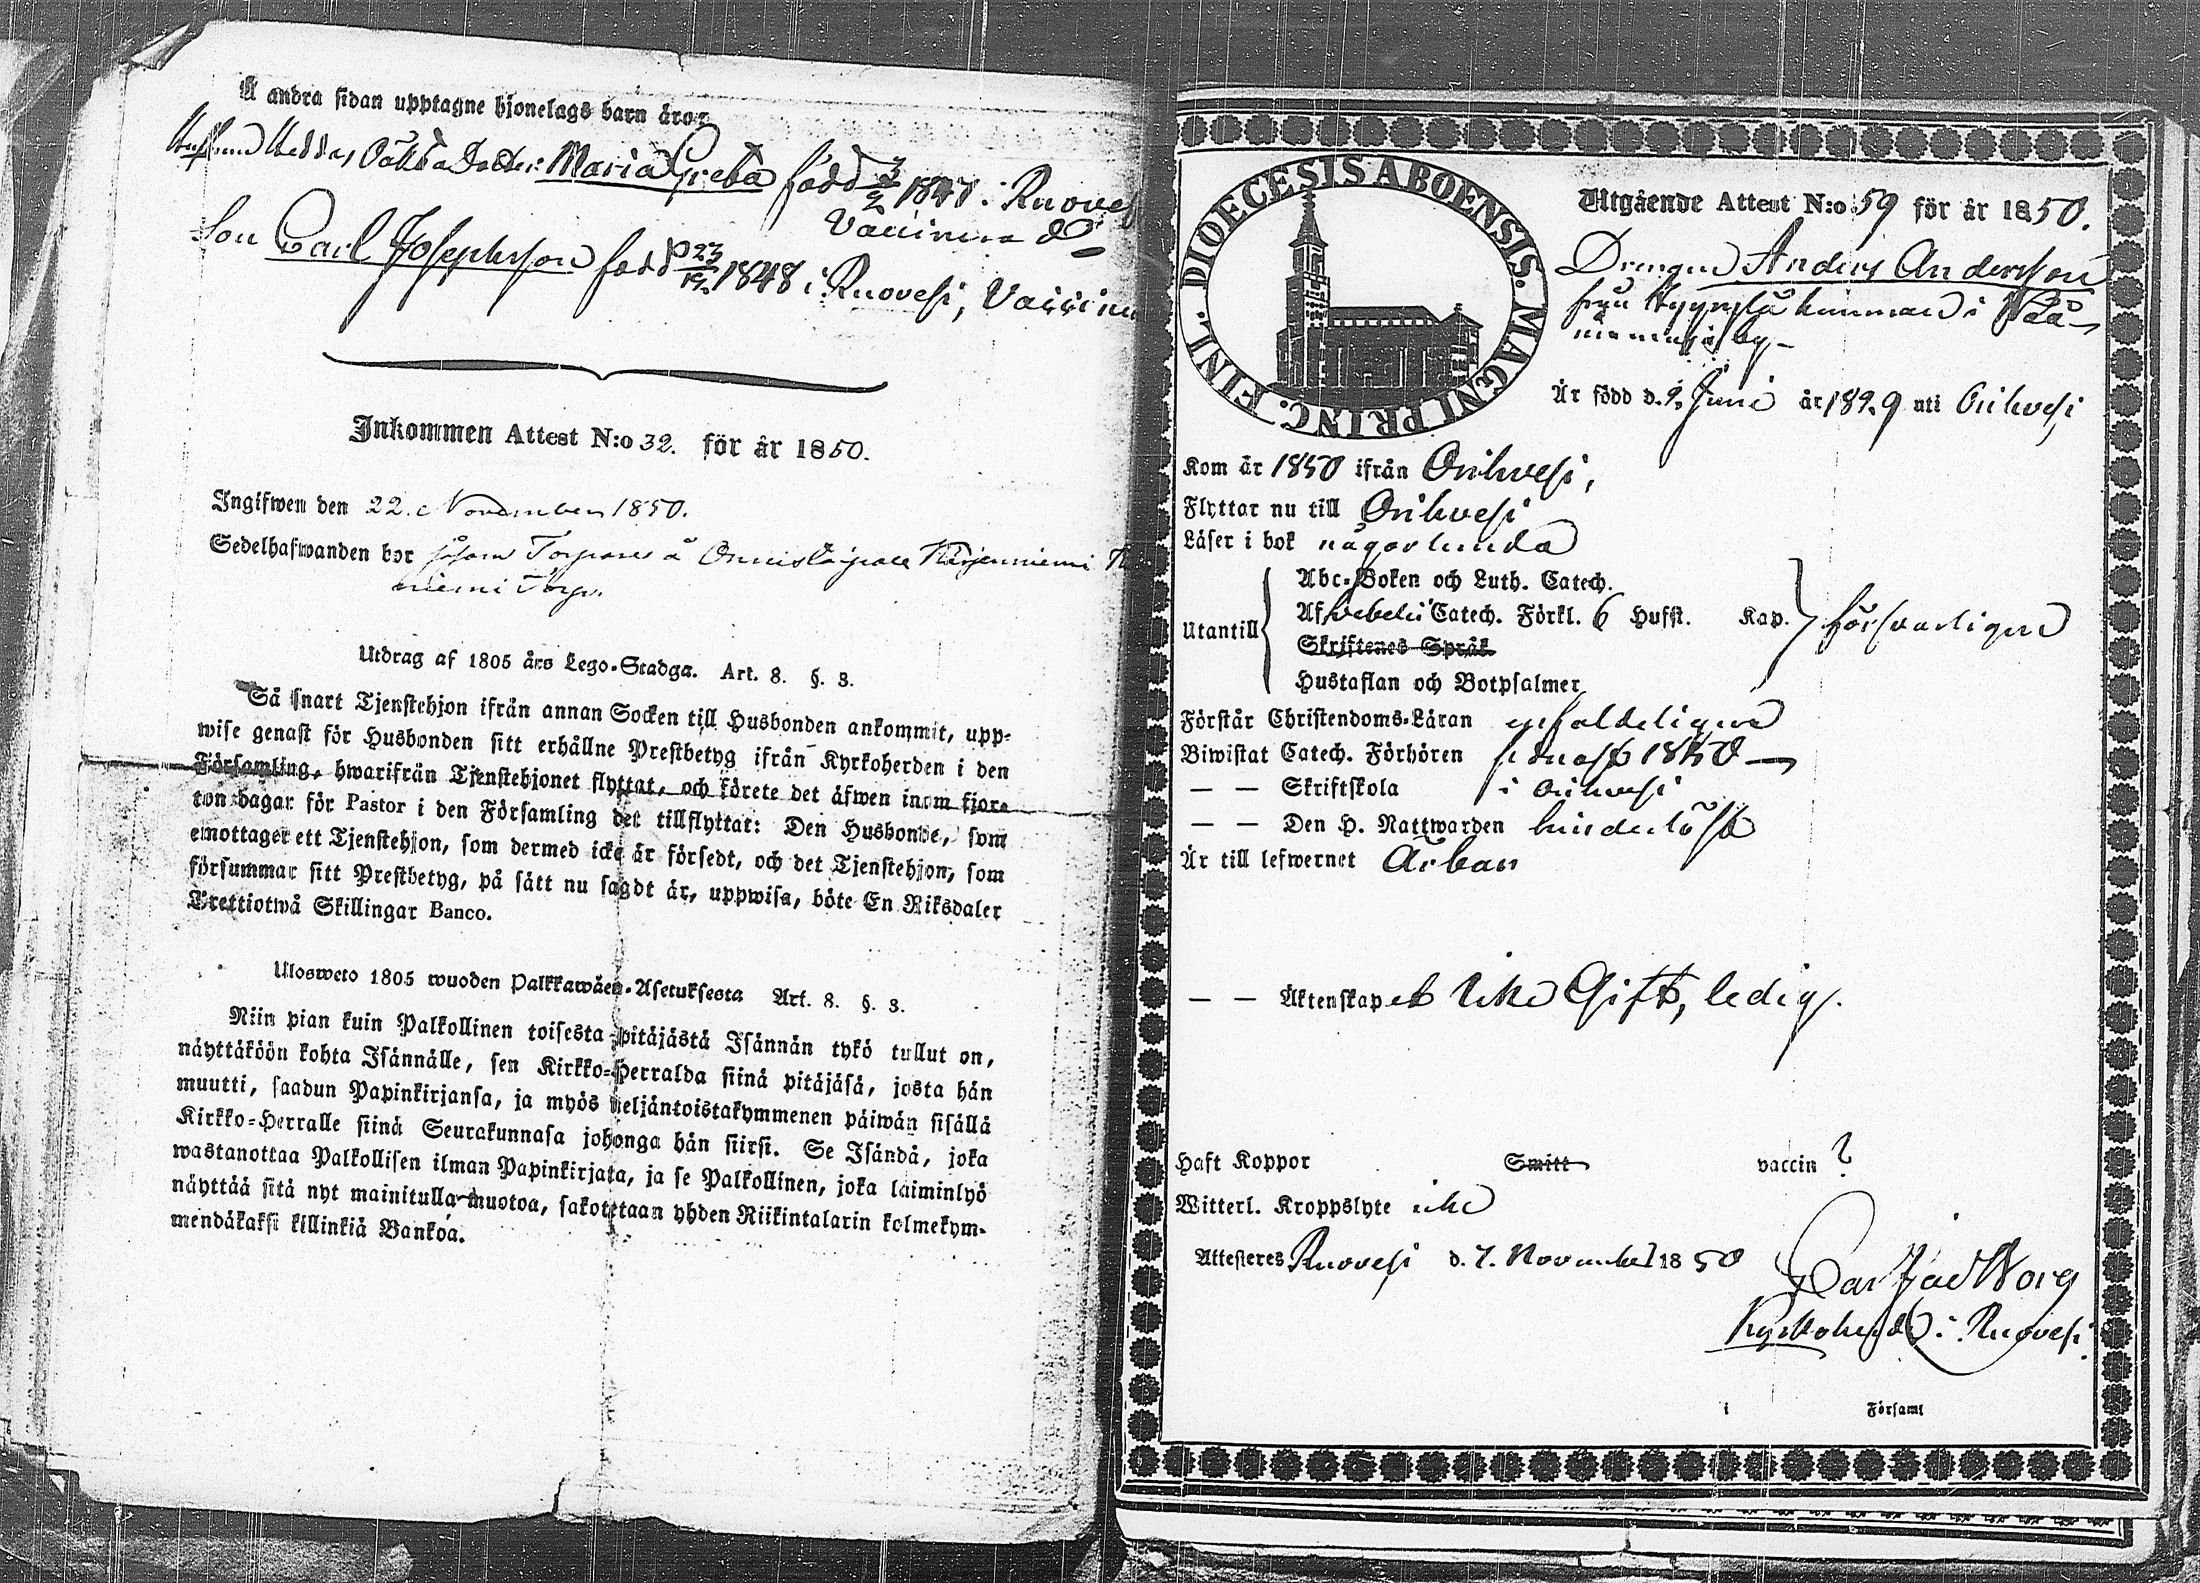 Å andra sidan upptagne hjonelags barn äro:
Dotter Maria Greta född 3/2 1847 i Ruovesi
Vaccinerad
Son Carl Josephsson född 23/12 1848 i Ruovesi, Vaccine
Inkommen Attest N:o 32. för år 1850.
Ingifwen den 22. November 1850.
Sedelhafwanden bor såsom Torpare å
niemi Torp.
Utdrag af 1805 års Lego-Stadga. Art. 8. §. 3.
Så snart Tjenstehjon ifrån annan Socken till Husbonden ankommit, upp-
wise genast för Husbonden sitt erhållne Prestbetyg ifrån Kyrkoherden i den
Församling, hwarifrån Tjenstehjonet flyttat, och förete det äfwen inom fjor-
ton dagar för Pastor i den Församling det tillflyttat: Den Husbonde, som
emottager ett Tjenstehjon, som dermed icke är försedt, och det Tjenstehjon, som
försummar sitt Prestbetyg, på sätt nu sagdt är, uppwisa, böte En Riksdaler
Trettiotwå Skillingar Banco.
Ulosweto 1805 wuoden Palkkawäen-Asetuksesta Art. 8. §. 3.
Niin pian kuin Palkollinen toisesta pitäjästä Isännän tykö tullut on,
näyttäköön kohta Isännälle, sen Kirkko-Herralda siinä pitäjäsä, josta hän
muutti, saadun Papinkirjansa, ja myös neljäntoistakymmenen päiwän sisällä
Kirkko-Herralle siinä Seurakunnasa johonga hän siirsi. Se Isändä, joka
wastanottaa Palkollisen ilman Papinkirjata, ja se Palkollinen, joka laiminlyö
näyttää sitä nyt mainitulla muotoa, sakotetaan yhden Riikintalarin kolmekym-
mendäkaksi killinkiä Bankoa.
DIOECESIS ABOENSIS. MAGNI PRINC. FINL.
Utgående Attest N:o 59 för år 1850.
Drengen Anders Andersson
från i
by
Är född d. 9. Juni år 1829 uti Orihvesi
Kom år 1850 ifrån Orihvesi,
Flyttar nu till Orihvesi
Läser i bok någorlunda
Abc-Boken och Luth. Catech.
Utantill Af Svebelii Catech. Förkl. 6 Hufst. Kap. försvarligen
Skriftenes Språk
Hustaflan och Botpsalmer
Förstår Christendoms-Läran enfaldeligen
Biwistat Catech. Förhören sednast 1850
— — Skriftskola i Orihvesi
— — Den H. Nattwarden hinderlöst
Är till lefwernet Ärbar
— — Äktenskapet Icke Gift, ledig.
Haft Koppor Smitt vaccin ?
Witterl. Kroppslyte icke
Attesteres Ruovesi d. 7. November 1850
Carl Borg
Kyrkoherde i Ruovesi.
i Församl